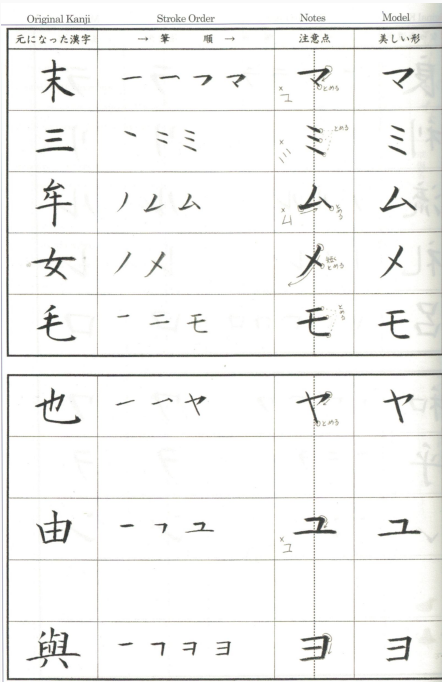 Original Kanji Stroke Order Notes Model
元になった漢字 → 筆 順 → 注意点 美しい形
末 一 フ マ マ とめる × マ
三 丶 ミ ミ ミ とめる × ミ
牟 ノ レ ム ム とめる × ム
女 ノ メ メ とめる メ
毛 一 二 モ モ とめる モ
也 一 ヤ ヤ とめる ヤ
由 一 ㇕ ユ ユ × ユ
與 一 ㇕ ヨ ヨ ヨ ヨ